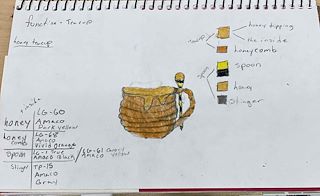 function - Teacup
honey teacup
Teacup
honey dripping
the inside
honeycomb
Spoon
spoon
honey
Stinger
honey
LG-60
Amaco
Dark yellow
honey
comb
LG-68
Amaco
Vivid orange
Spoon
LG-1 True
Amaco Black
LG-61
Amaco
yellow
Stinger
TP-15
Amaco
Gray